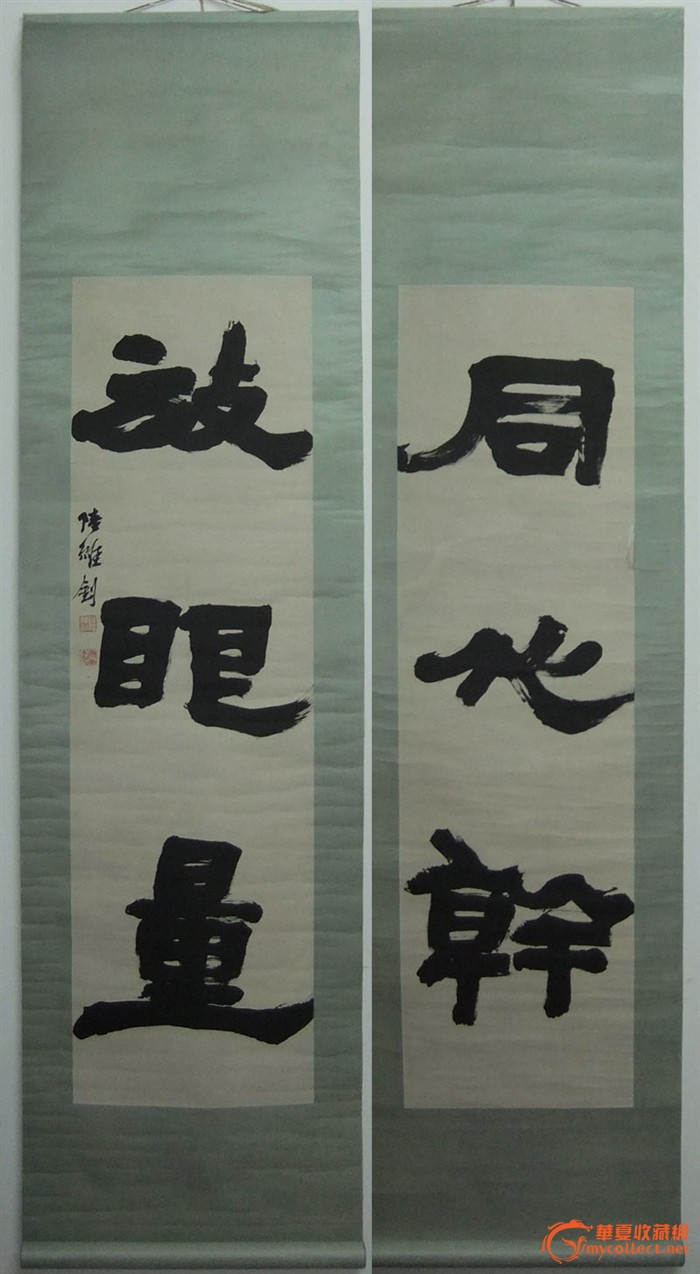 同心幹
放眼量
陸維釗
華夏收藏網
mycollect.net